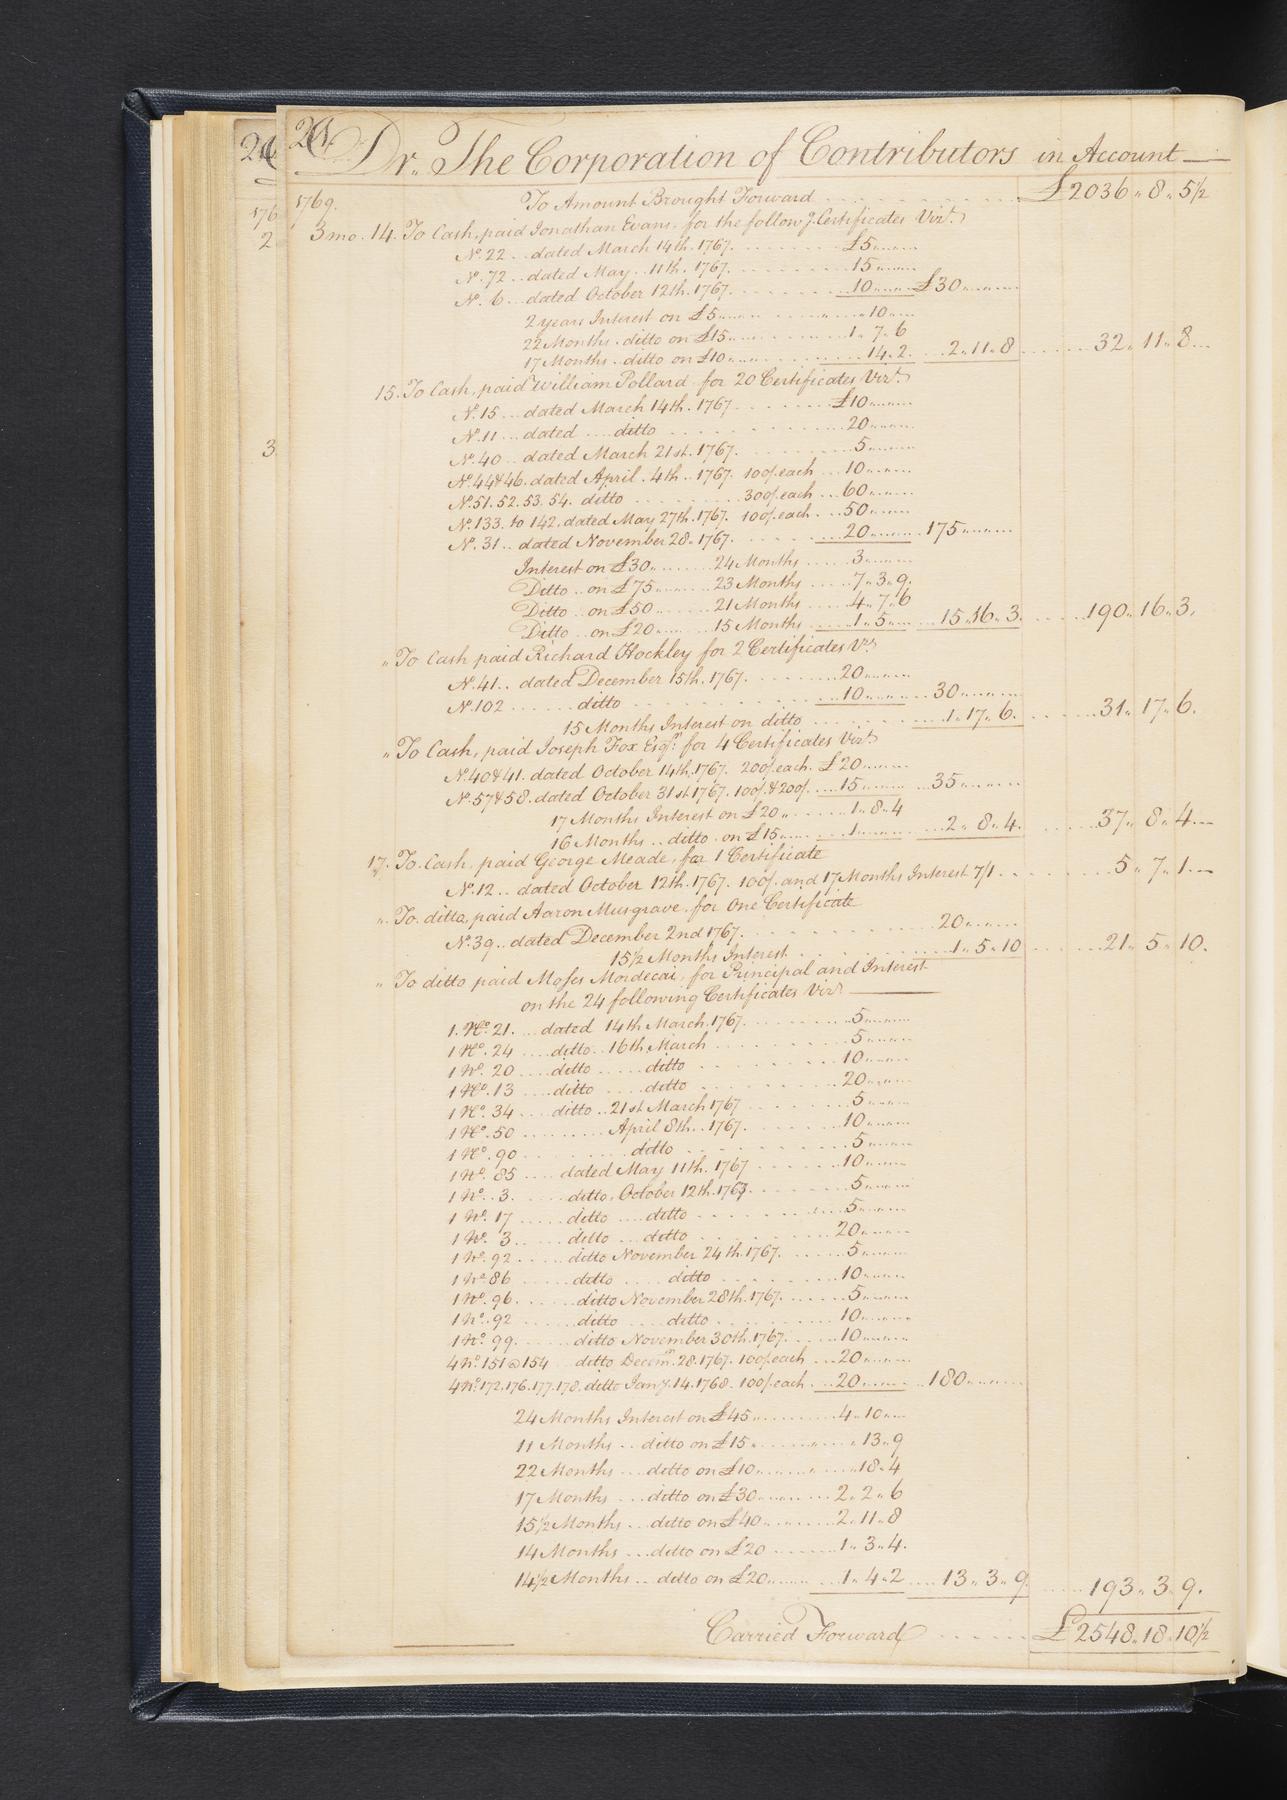 20
Dr. The Corporation of Contributors in Account
1769.
To Amount Brought Forward £2036 „ 8 „ 5½
3 mo. 14. To Cash, paid Jonathan Evans, for the follow.g Certificates Vizt.
No. 22 .. dated March 14th. 1767. £5
No. 72 .. dated May .. 11th. 1767. 15
No. 6 .. dated October 12th. 1767. 10 £30
2 years Interest on £5 „ 10
22 Months .. ditto on £15 1 „ 7 „ 6
17 Months .. ditto on £10 14 „ 2 2 „ 11 „ 8 32 „ 11 „ 8
15. To Cash, paid William Pollard for 20 Certificates Vizt.
No. 15 ... dated March 14th. 1767 £10
No. 11 ... dated .... ditto 20
No. 40 .. dated March 21st. 1767. 5
No. 44 & 46. dated April .. 4th .. 1767. 100/. each 10
No. 51. 52. 53. 54. ditto 300/. each 60
No. 133. to 142. dated May 27th. 1767. 100/. each 50
No. 31 .. dated November 28. 1767. 20 175
Interest on £30 24 Months 3
Ditto .. on £75 23 Months 7 „ 3 „ 9.
Ditto .. on £50 21 Months 4 „ 7 „ 6
Ditto .. on £20 15 Months 1 „ 5 15 „ 16 „ 3. 190 „ 16 „ 3.
„ To Cash paid Richard Hockley for 2 Certificates Vt.
No. 41 .. dated December 15th. 1767. 20
No. 102 ditto 10 30
15 Months Interest on ditto 1 „ 17 „ 6. 31 „ 17 „ 6.
„ To Cash, paid Joseph Fox Esqr. for 4 Certificates Vizt.
No. 40 & 41. dated October 14th. 1767. 200/. each. £20
No. 57 & 58. dated October 31st 1767. 100/. & 200/. 15 35
17 Months Interest on £20 1 „ 8 „ 4
16 Months .. ditto . on £15 1 2 „ 8 „ 4. 37 „ 8 „ 4
17. To Cash, paid George Meade, for 1 Certificate
No. 12 .. dated October 12th. 1767. 100/. and 17 Months Interest 7/1 5 „ 7 „ 1
„ To ditto, paid Aaron Musgrave, for One Certificate
No. 39 .. dated December 2nd 1767. 20
15½ Months Interest 1 „ 5 „ 10 21 „ 5 „ 10.
„ To ditto paid Moses Mordecai, for Principal and Interest
on the 24 following Certificates Vizt.
1. No. 21. dated 14th March. 1767. 5
1 No. 24 ditto .. 16th March 5
1 No. 20 ditto ditto 10
1 No. 13 ditto ditto 20
1 No. 34 ditto .. 21st March 1767 5
1 No. 50 April 8th .. 1767. 10
1 No. 90 ditto 5
1 No. 85 dated May 11th. 1767 10
1 No. 3. ditto. October 12th. 1767. 5
1 No. 17 ditto ditto 5
1 No. 3 ditto ditto 20
1 No. 92 ditto November 24th. 1767. 5
1 No. 86 ditto ditto 10
1 No. 96. ditto November 28th. 1767. 5
1 No. 92 ditto ditto 10
1 No. 99. ditto November 30th. 1767. 10
4 No. 151 @ 154 ditto Decemr. 28. 1767. 100/. each 20
4 No. 172. 176. 177. 178. ditto Jany. 14. 1768. 100/. each 20 180
24 Months Interest on £45 4 „ 10
11 Months .. ditto on £15 „ 13 „ 9
22 Months ditto on £10 18 „ 4
17 Months ditto on £30 2 „ 2 „ 6
15½ Months ditto on £40 2 „ 11 „ 8
14 Months ditto on £20 1 „ 3 „ 4.
14½ Months .. ditto on £20 1 „ 4 „ 2 13 „ 3 „ 9 193 „ 3 „ 9.
Carried Forward £2548 „ 18 „ 10½
176
2
3